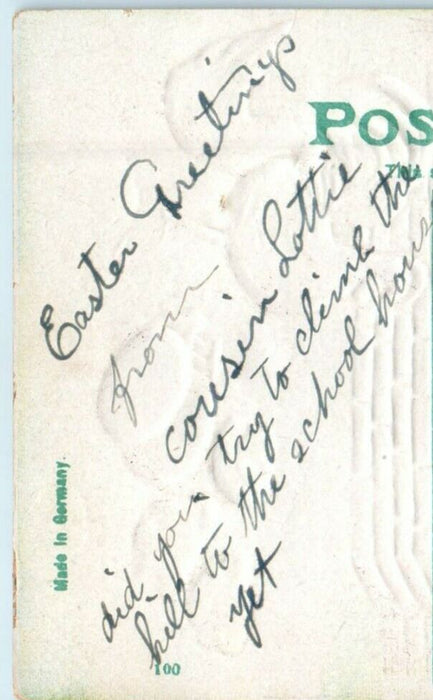 Easter Greetings
from
cousin Lottie
did you try to climb the
hill to the school hous
yet
POS
This
Made in Germany.
100